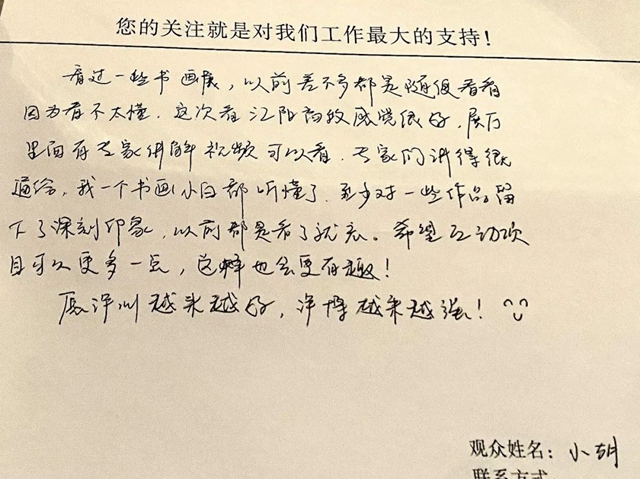 您的关注就是对我们工作最大的支持!
看过一些书画展，以前差不多都是随便看看
因为看不太懂。这次看江阴的故感觉很好，展厅
里面有专家讲解视频可以看，专家们讲得很
通俗，我一个书画小白都听懂了，至少对一些作品留
下了深刻印象，以前都是看了就忘。希望互动项
目可以更多一点，这样也会更有趣！
愿深圳越来越好，深博越来越强！
观众姓名：小胡
联系方式